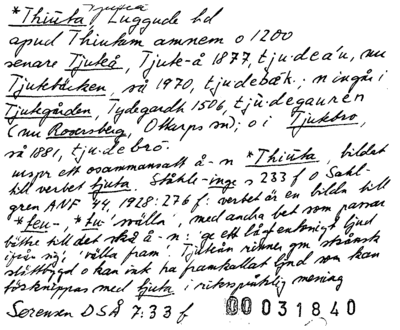 Tjutеå
*Thiuta, Luggude hd
apud Thiutam amnem o 1200
senare Tjuteå, Tjute-å 1877, tju·deà'u, nu
Tjutebäcken, så 1970, tju·debæk·; n ingår i
Tjutgården, Tydegardt 1506, tjù·degauren
(nu Rosersberg, Ottarps sn); o i Tjutebro,
så 1881, tju·debro·
urspr ett osammansatt å-n *Thiuta, bildat
till verbet tjuta. Ståhle -inge s 233 f o Sahl-
gren ANF 44, 1928:276 f: verbet är en bildn till
*teu-, *tu- 'svälla', med andra bet som passar
bättre till det skå å-n: 'ge ett lågt entonigt ljud
ifrån sig', 'välla fram'. Tjuteån rinner gm skånsk
slättbygd o kan ink ha framkallat ljud som kan
förknippas med tjuta i riksspråklig mening
Sørensen DSÅ 7:33 f 00031840